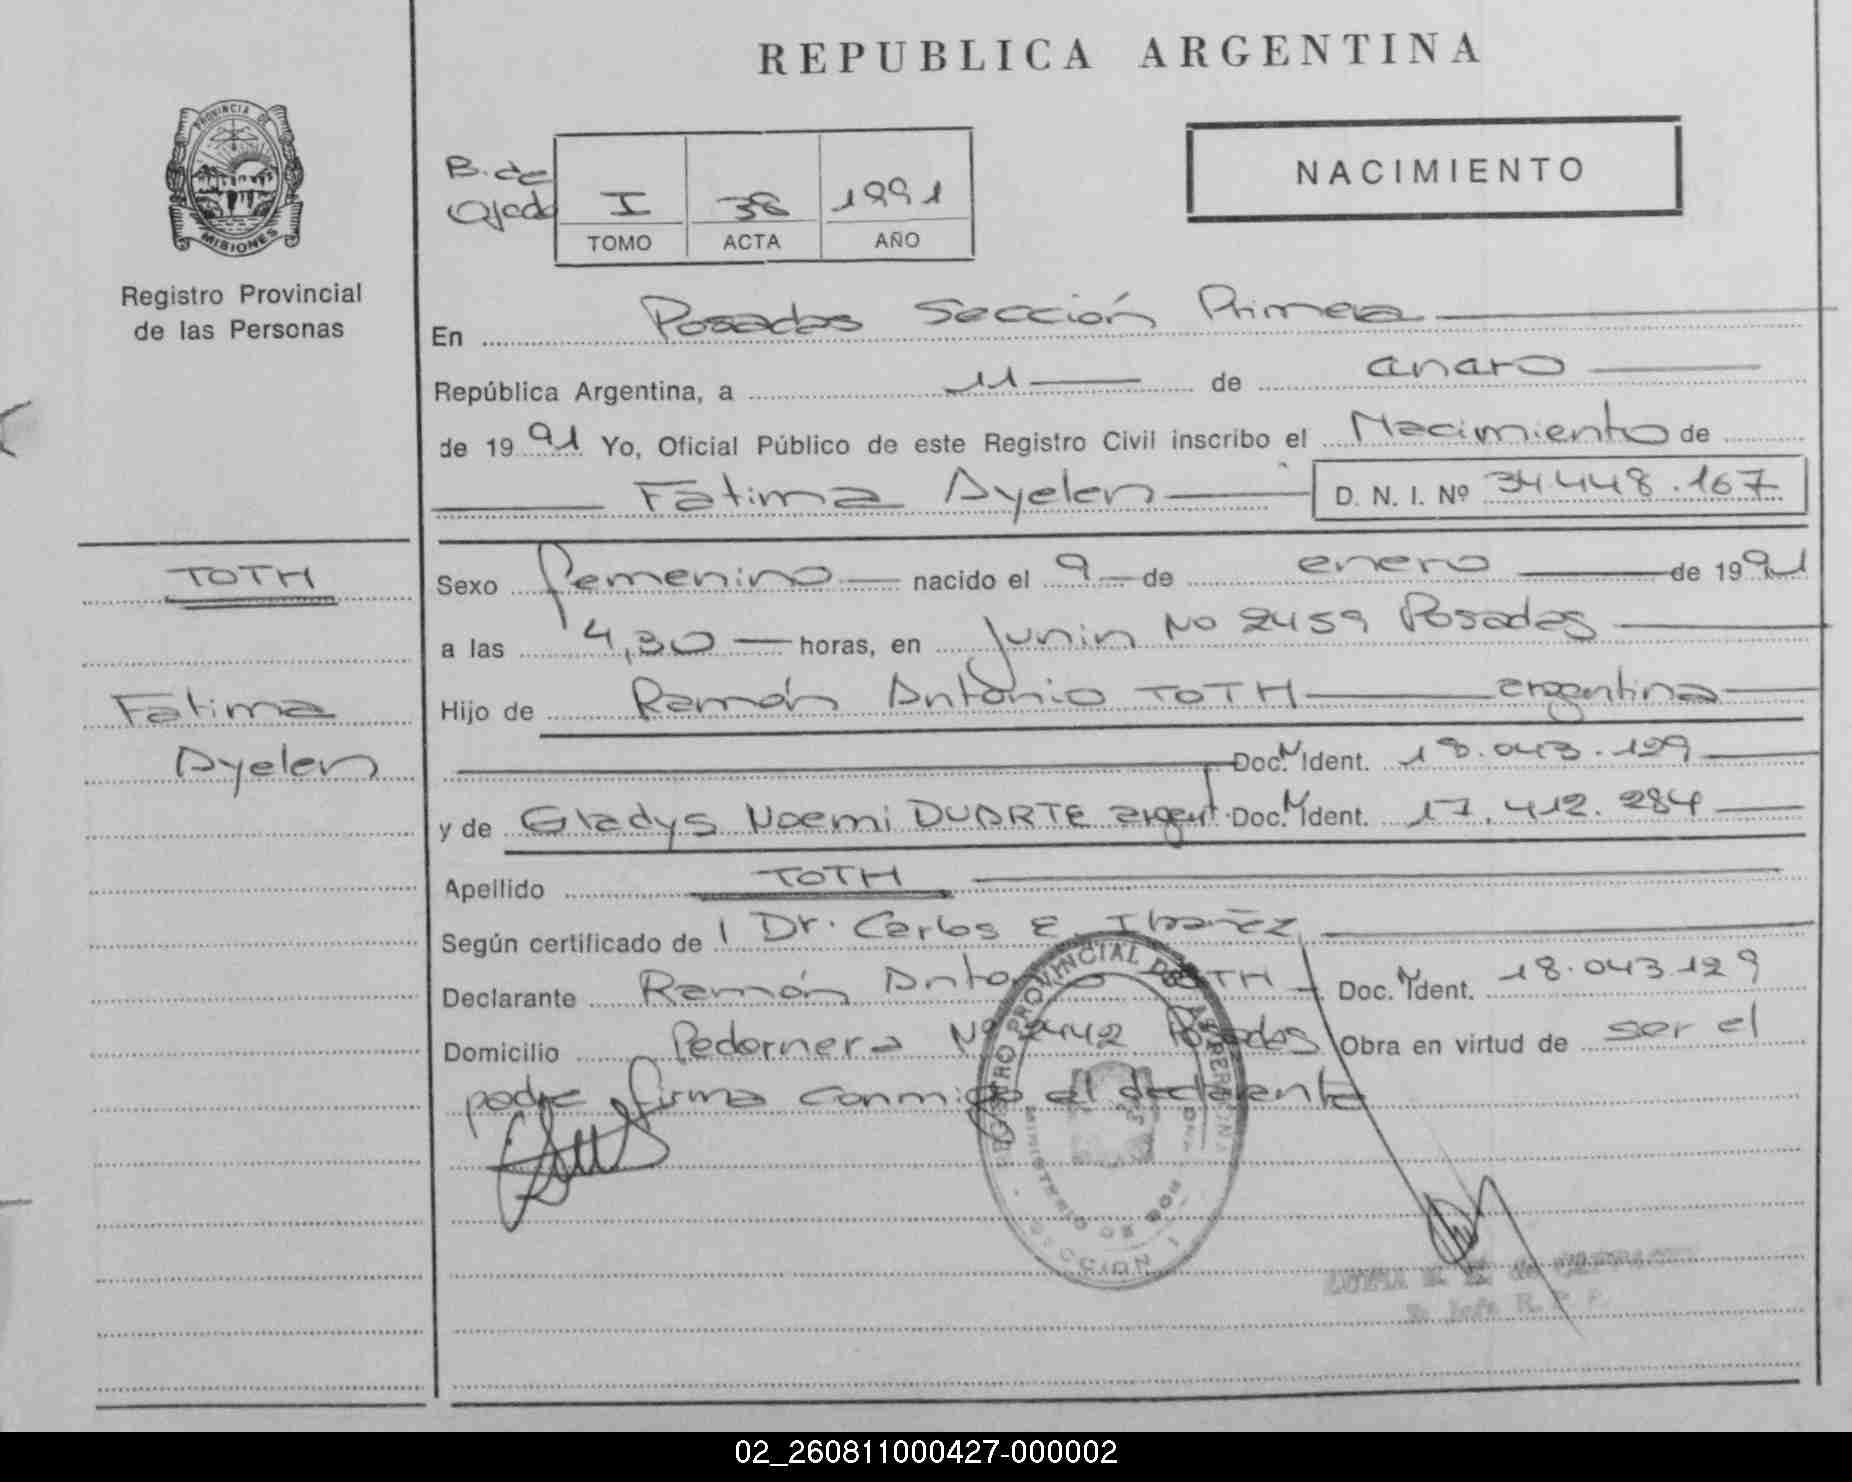 REPUBLICA ARGENTINA
PROVINCIA DE
MISIONES
Registro Provincial
de las Personas
B. de
I 38 1991
TOMO ACTA AÑO
NACIMIENTO
En Posadas Sección Primera
República Argentina, a 11 de
de 1991 Yo, Oficial Público de este Registro Civil inscribo el Nacimiento de
Fatima Ayelen D. N. I. Nº 34.448.167
TOTH
Fatima
Ayelen
Sexo femenino nacido el 9 de enero de 1991
a las 4,30 horas, en Junin No 2459 Posadas
Hijo de Ramón Antonio TOTH argentina
Doc. N Ident. 18.043.129
y de Gladys Noemi DUARTE argent. Doc. N Ident. 17.412.284
Apellido TOTH
Según certificado de Dr. Carlos E. Ibañez
Declarante Ramón Antonio TOTH Doc. N Ident. 18.043.129
Domicilio Pedernera Nº 2442 Posadas Obra en virtud de ser el
padre firma conmigo el declarante
REGISTRO PROVINCIAL DE LAS PERSONAS
MINISTERIO DE GOB
SECCION 1
02_260811000427-000002